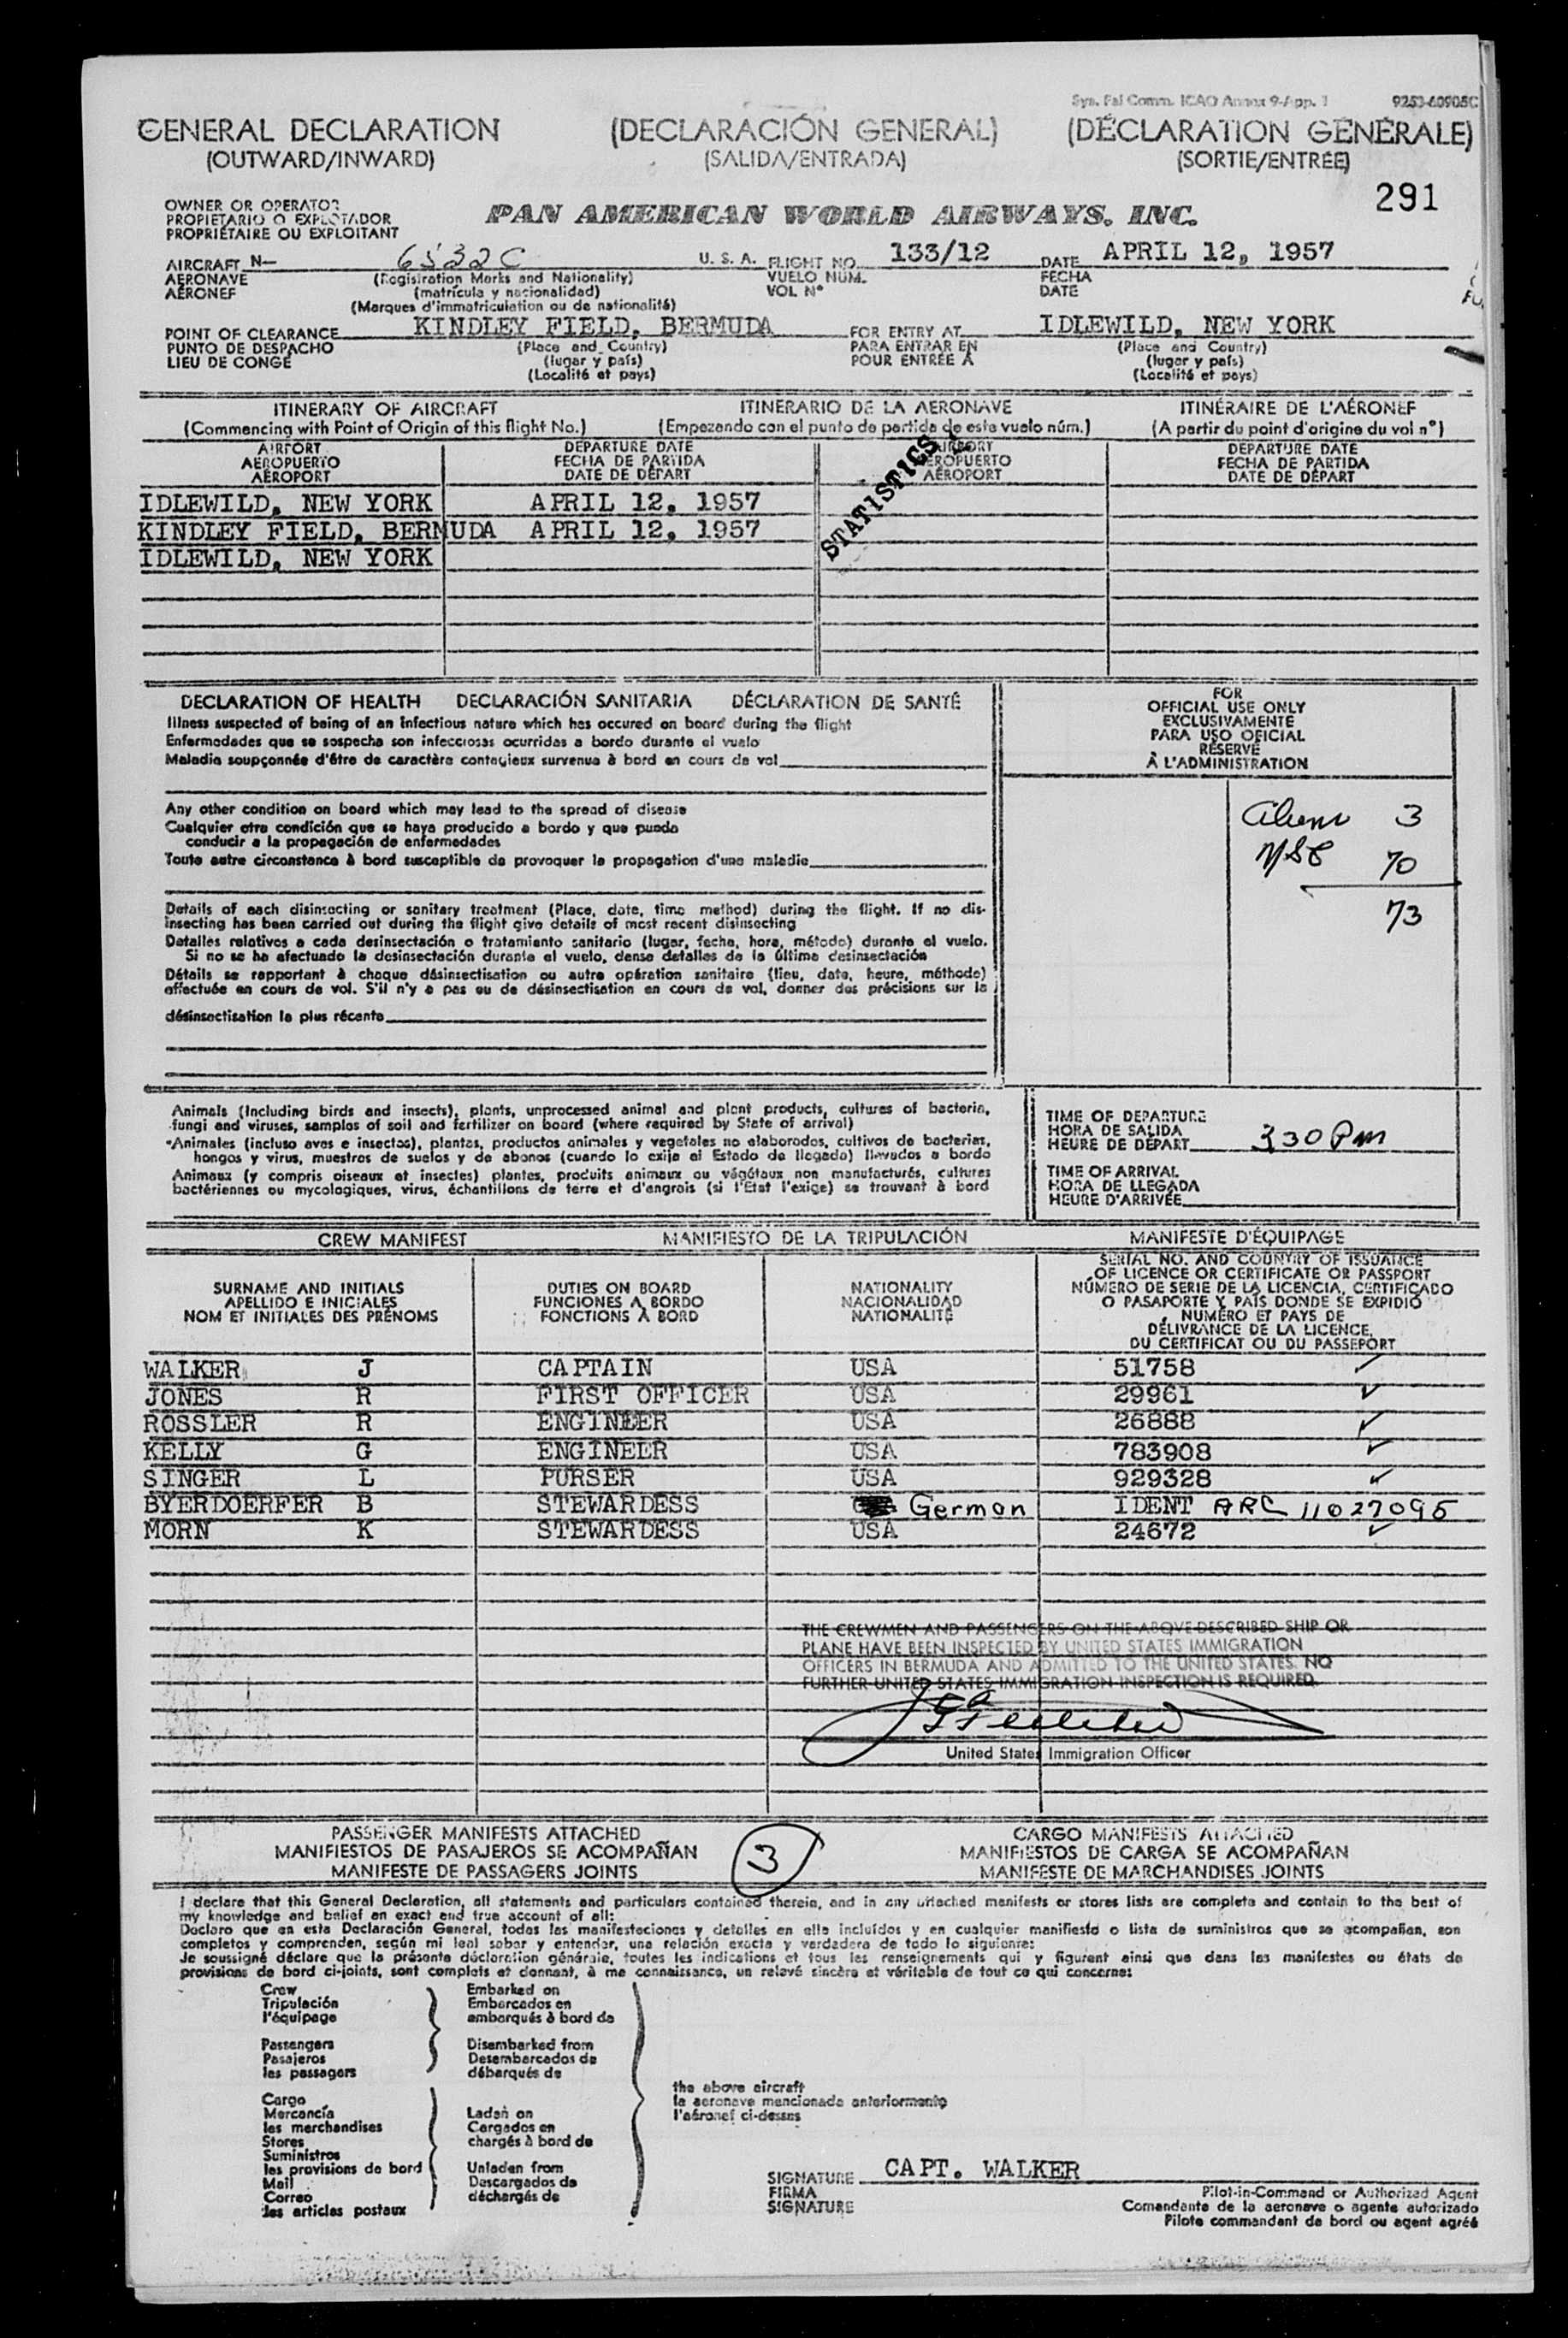 Sys. Fal Comm. ICAO Annex 9-App. 1 9253-60905C
GENERAL DECLARATION (DECLARACIÓN GENERAL) (DÉCLARATION GÉNÉRALE)
(OUTWARD/INWARD) (SALIDA/ENTRADA) (SORTIE/ENTRÉE)
291
OWNER OR OPERATOR
PROPIETARIO O EXPLOTADOR PAN AMERICAN WORLD AIRWAYS, INC.
PROPRIÉTAIRE OU EXPLOITANT
AIRCRAFT N— 6532C U. S. A. FLIGHT NO. 133/12 DATE APRIL 12, 1957
AERONAVE (Registration Marks and Nationality) VUELO NÚM. FECHA
AÉRONEF (matrícula y nacionalidad) VOL N° DATE
(Marques d'immatriculation ou de nationalité)
POINT OF CLEARANCE KINDLEY FIELD, BERMUDA FOR ENTRY AT IDLEWILD, NEW YORK
PUNTO DE DESPACHO (Place and Country) PARA ENTRAR EN (Place and Country)
LIEU DE CONGÉ (lugar y país) POUR ENTRÉE À (lugar y país)
(Localité et pays) (Localité et pays)
ITINERARY OF AIRCRAFT ITINERARIO DE LA AERONAVE ITINÉRAIRE DE L'AÉRONEF
(Commencing with Point of Origin of this flight No.) (Empezando con el punto de partida de este vuelo núm.) (A partir du point d'origine du vol n°)
AIRPORT DEPARTURE DATE AIRPORT DEPARTURE DATE
AEROPUERTO FECHA DE PARTIDA AEROPUERTO FECHA DE PARTIDA
AÉROPORT DATE DE DÉPART AÉROPORT DATE DE DÉPART
STATISTICS
IDLEWILD, NEW YORK APRIL 12, 1957
KINDLEY FIELD, BERMUDA APRIL 12, 1957
IDLEWILD, NEW YORK
DECLARATION OF HEALTH DECLARACIÓN SANITARIA DÉCLARATION DE SANTÉ
Illness suspected of being of an infectious nature which has occured on board during the flight
Enfermedades que se sospecha son infecciosas ocurridas a bordo durante el vuelo
Maladie soupçonnée d'être de caractère contagieux survenue à bord en cours de vol
Any other condition on board which may lead to the spread of disease
Cualquier otra condición que se haya producido a bordo y que pueda
conducir a la propagación de enfermedades
Toute autre circonstance à bord susceptible de provoquer la propagation d'une maladie
Details of each disinsecting or sanitary treatment (Place, date, time method) during the flight. If no dis-
insecting has been carried out during the flight give details of most recent disinsecting
Detalles relativos a cada desinsectación o tratamiento sanitario (lugar, fecha, hora, método) durante el vuelo.
Si no se ha efectuado la desinsectación durante el vuelo, dense detalles de la última desinsectación
Détails se rapportant à chaque désinsectisation ou autre opération sanitaire (lieu, date, heure, méthode)
effectuée en cours de vol. S'il n'y a pas eu de désinsectisation en cours de vol, donner des précisions sur la
désinsectisation la plus récente
FOR
OFFICIAL USE ONLY
EXCLUSIVAMENTE
PARA USO OFICIAL
RÉSERVÉ
À L'ADMINISTRATION
Aliens 3
USC 70
73
Animals (Including birds and insects), plants, unprocessed animal and plant products, cultures of bacteria,
fungi and viruses, samples of soil and fertilizer on board (where required by State of arrival)
Animales (incluso aves e insectos), plantas, productos animales y vegetales no elaborados, cultivos de bacterias,
hongos y virus, muestras de suelos y de abonos (cuando lo exija el Estado de llegada) llevados a bordo
Animaux (y compris oiseaux et insectes) plantes, produits animaux ou végétaux non manufacturés, cultures
bactériennes ou mycologiques, virus, échantillons de terre et d'engrais (si l'Etat l'exige) se trouvant à bord
TIME OF DEPARTURE
HORA DE SALIDA
HEURE DE DÉPART 330 Pm
TIME OF ARRIVAL
HORA DE LLEGADA
HEURE D'ARRIVÉE
CREW MANIFEST MANIFIESTO DE LA TRIPULACIÓN MANIFESTE D'ÉQUIPAGE
SURNAME AND INITIALS
APELLIDO E INICIALES
NOM ET INITIALES DES PRÉNOMS
DUTIES ON BOARD
FUNCIONES A BORDO
FONCTIONS À BORD
NATIONALITY
NACIONALIDAD
NATIONALITÉ
SERIAL NO. AND COUNTRY OF ISSUANCE
OF LICENCE OR CERTIFICATE OR PASSPORT
NÚMERO DE SERIE DE LA LICENCIA, CERTIFICADO
O PASAPORTE Y PAÍS DONDE SE EXPIDIÓ
NUMÉRO ET PAYS DE
DÉLIVRANCE DE LA LICENCE,
DU CERTIFICAT OU DU PASSEPORT
WALKER J CAPTAIN USA 51758 ✓
JONES R FIRST OFFICER USA 29961 ✓
ROSSLER R ENGINEER USA 26888 ✓
KELLY G ENGINEER USA 783908 ✓
SINGER L PURSER USA 929328 ✓
BYERDOERFER B STEWARDESS German IDENT ARC 11027095
MORN K STEWARDESS USA 24672 ✓
THE CREWMEN AND PASSENGERS ON THE ABOVE DESCRIBED SHIP OR
PLANE HAVE BEEN INSPECTED BY UNITED STATES IMMIGRATION
OFFICERS IN BERMUDA AND ADMITTED TO THE UNITED STATES. NO
FURTHER UNITED STATES IMMIGRATION INSPECTION IS REQUIRED.
United States Immigration Officer
PASSENGER MANIFESTS ATTACHED CARGO MANIFESTS ATTACHED
MANIFIESTOS DE PASAJEROS SE ACOMPAÑAN 3 MANIFIESTOS DE CARGA SE ACOMPAÑAN
MANIFESTE DE PASSAGERS JOINTS MANIFESTE DE MARCHANDISES JOINTS
I declare that this General Declaration, all statements and particulars contained therein, and in any attached manifests or stores lists are complete and contain to the best of
my knowledge and belief an exact and true account of all:
Declaro que en esta Declaración General, todas las manifestaciones y detalles en ella incluídos y en cualquier manifiesto o lista de suministros que se acompañan, son
completos y comprenden, según mi leal saber y entender, una relación exacta y verdadera de todo lo siguiente:
Je soussigné déclare que la présente déclaration générale, toutes les indications et tous les renseignements qui y figurent ainsi que dans les manifestes ou états de
provisions de bord ci-joints, sont complets et donnent, à ma connaissance, un relevé sincère et véritable de tout ce qui concerne:
Crew Embarked on
Tripulación Embarcados en
l'équipage embarqués à bord de
Passengers Disembarked from
Pasajeros Desembarcados de
les passagers débarqués de
the above aircraft
la aeronave mencionada anteriormente
l'aéronef ci-dessus
Cargo
Mercancía Laden on
les merchandises Cargados en
Stores chargés à bord de
Suministros
les provisions de bord Unladen from
Mail Descargados de
Correo déchargés de
les articles postaux
SIGNATURE CAPT. WALKER
FIRMA Pilot-in-Command or Authorized Agent
SIGNATURE Comandante de la aeronave o agente autorizado
Pilote commandant de bord ou agent agréé